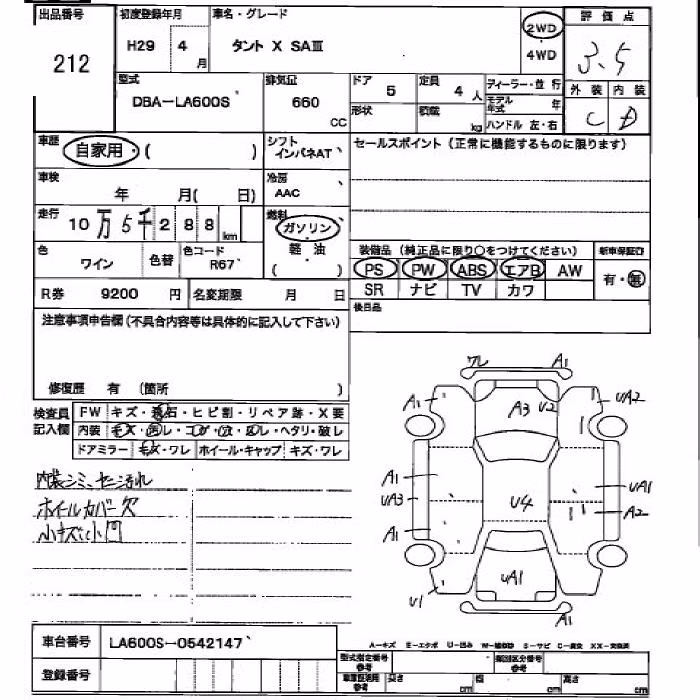 出品番号 初度登録年月 車名・グレード 評価点
212 H29 4月 タント X SAⅢ 2WD 4WD 3.5
型式 排気量 ドア 5 定員 4人 ディーラー・並行 外装 内装
DBA-LA600S 660 CC 形状 積載 kg モデル年式 年 C D
ハンドル 左・右
車歴 自家用・( ) シフト インパネAT セールスポイント (正常に機能するものに限ります)
車検 年 月( 日) 冷房 AAC
走行 10万5千288km 燃料 ガソリン
軽・油
( ・ )
色 ワイン 色替 色コード R67 装備品 (純正品に限り○をつけてください) 新車保証書
PS PW ABS エアB AW 有・無
R券 9200円 名変期限 月 日 SR ナビ TV カワ
注意事項申告欄(不具合内容等は具体的に記入して下さい) 後日品
修復歴 有 (箇所 )
検査員記入欄 FW キズ・飛石・ヒビ割・リペア跡・X要
内装 キズ・汚レ・コゲ・穴・スレ・ヘタリ・破レ
ドアミラー キズ・ワレ ホイール・キャップ キズ・ワレ
内装シミ、セン汚れ
ホイールカバー欠
小キズ小凹
ワレ A1
A1 A3 U2 UA2
A1 UA1
UA3 U4 A2
A1
UA1
U1 A1
A-キズ E-エクボ U-凹み W-補修跡 S-サビ C-腐食 XX-交換済
車台番号 LA600S-0542147
登録番号
型式指定番号 参考 類別区分番号 参考
車庫証明用 参考 長さ cm 幅 cm 高さ cm